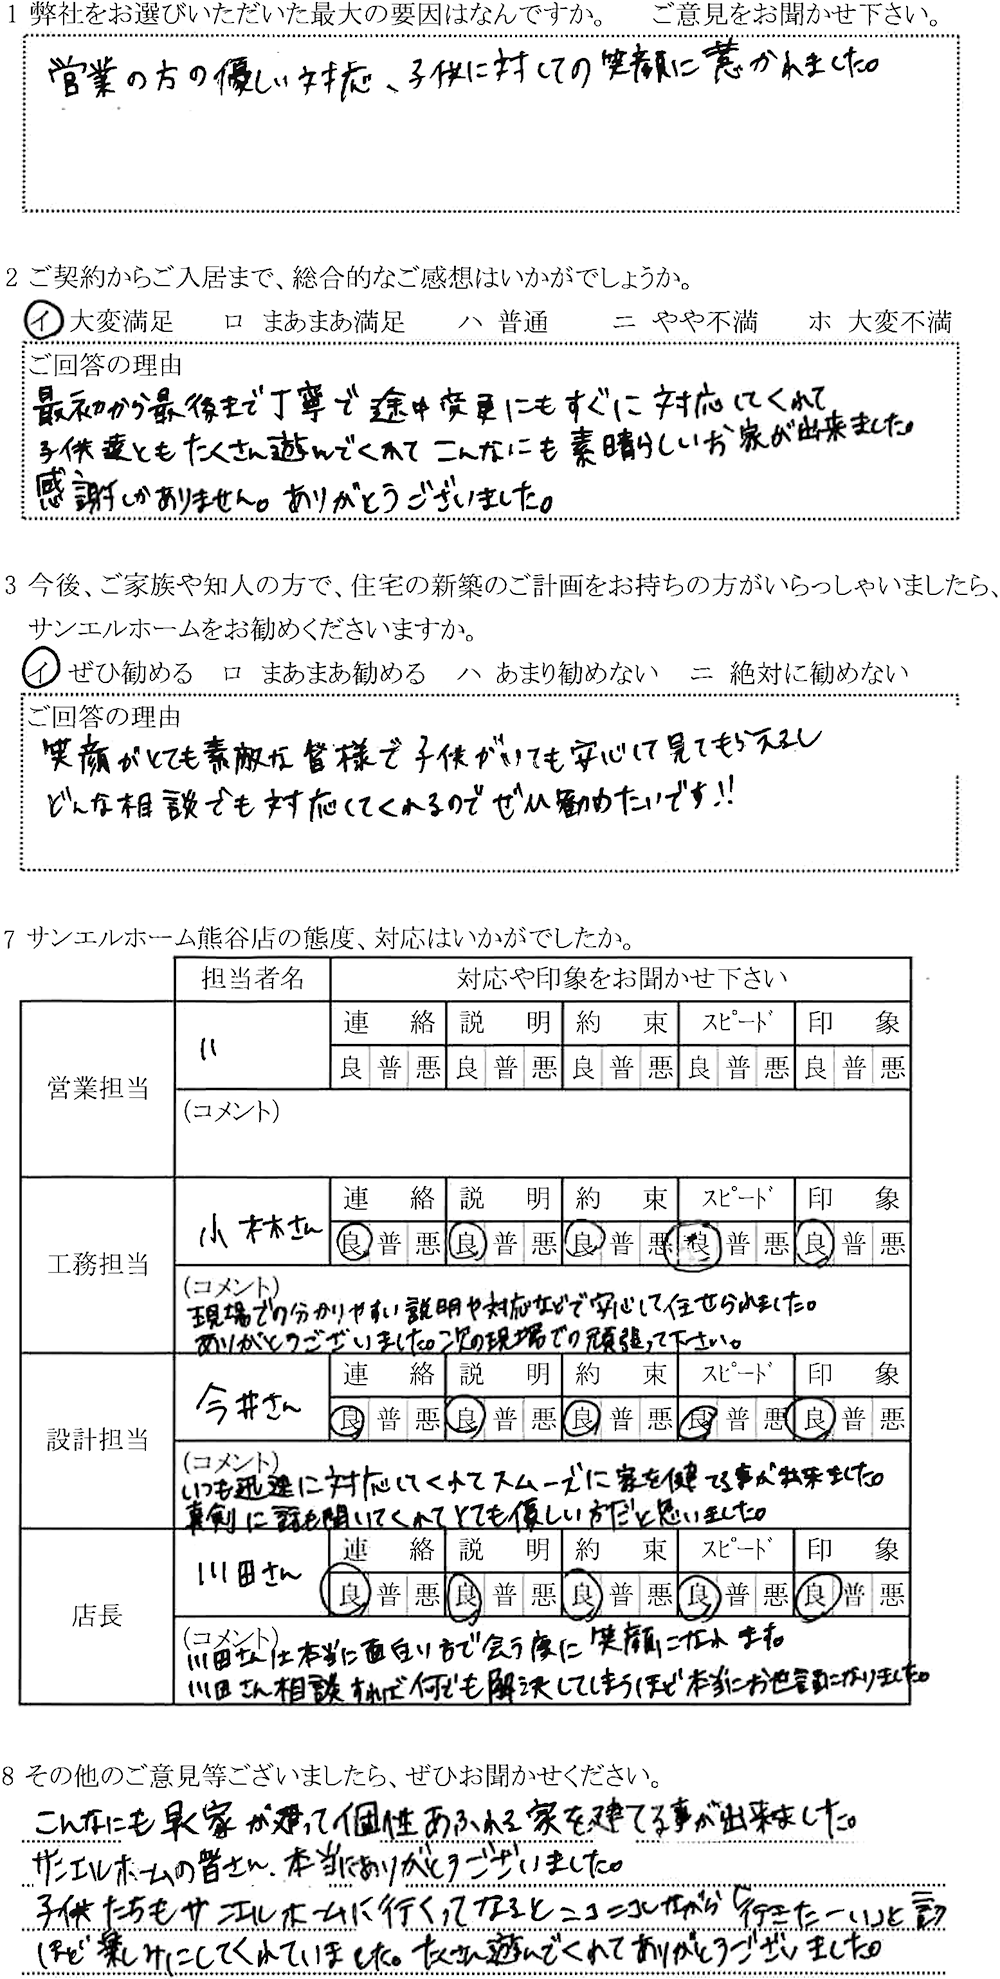 1 弊社をお選びいただいた最大の要因はなんですか。　ご意見をお聞かせ下さい。
営業の方の優しい対応、子供に対しての笑顔に惹かれました。
2 ご契約からご入居まで、総合的なご感想はいかがでしょうか。
イ 大変満足　ロ まあまあ満足　ハ 普通　ニ やや不満　ホ 大変不満
ご回答の理由
最初から最後まで丁寧で途中変更にもすぐに対応してくれて
子供達ともたくさん遊んでくれてこんなにも素晴らしいお家が出来ました。
感謝しかありません。ありがとうございました。
3 今後、ご家族や知人の方で、住宅の新築のご計画をお持ちの方がいらっしゃいましたら、
サンエルホームをお勧めくださいますか。
イ ぜひ勧める　ロ まあまあ勧める　ハ あまり勧めない　ニ 絶対に勧めない
ご回答の理由
笑顔がとても素敵な皆様で子供がいても安心して見てもらえるし
どんな相談でも対応してくれるのでぜひ勧めたいです!!
7 サンエルホーム熊谷店の態度、対応はいかがでしたか。
担当者名　対応や印象をお聞かせ下さい
営業担当
連絡 説明 約束 スピード 印象
良 普 悪 良 普 悪 良 普 悪 良 普 悪 良 普 悪
(コメント)
工務担当
小林さん
連絡 説明 約束 スピード 印象
良 普 悪 良 普 悪 良 普 悪 良 普 悪 良 普 悪
(コメント)
現場での分かりやすい説明や対応などで安心して任せられました。
ありがとうございました。次の現場での頑張って下さい。
設計担当
今井さん
連絡 説明 約束 スピード 印象
良 普 悪 良 普 悪 良 普 悪 良 普 悪 良 普 悪
(コメント)
いつも迅速に対応してくれてスムーズに家を建てる事が出来ました。
真剣に話も聞いてくれてとても優しい方だと思いました。
店長
川田さん
連絡 説明 約束 スピード 印象
良 普 悪 良 普 悪 良 普 悪 良 普 悪 良 普 悪
(コメント)
川田さんは本当に面白い方で会う度に笑顔になれます。
川田さん相談すれば何でも解決してしまうほど本当にお世話になりました。
8 その他のご意見等ございましたら、ぜひお聞かせください。
こんなにも早く家が建って個性あふれる家を建てる事が出来ました。
サンエルホームの皆さん、本当にありがとうございました。
子供たちもサンエルホームに行くってなるとニコニコしながら「行きたーい」と言う
ほど楽しみにしてくれていました。たくさん遊んでくれてありがとうございました。